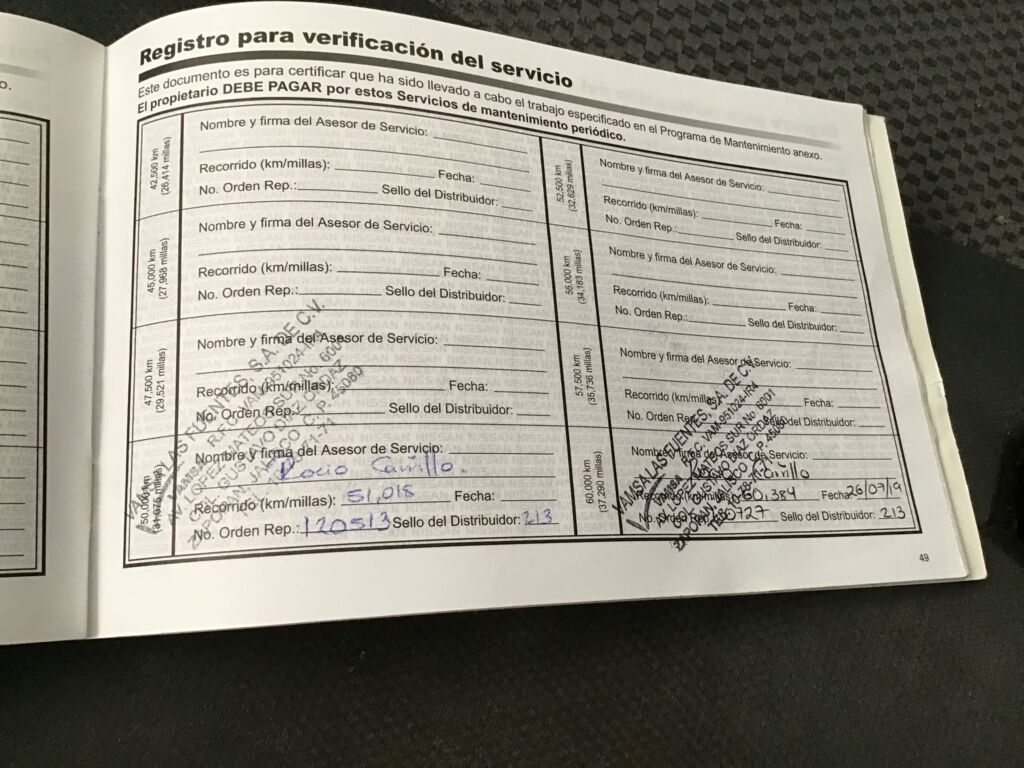 Registro para verificación del servicio
Este documento es para certificar que ha sido llevado a cabo el trabajo especificado en el Programa de Mantenimiento anexo.
El propietario DEBE PAGAR por estos Servicios de mantenimiento periódico.
42,500 km
(26,414 millas)
Nombre y firma del Asesor de Servicio:
Recorrido (km/millas): Fecha:
No. Orden Rep.: Sello del Distribuidor:
45,000 km
(27,968 millas)
Nombre y firma del Asesor de Servicio:
Recorrido (km/millas): Fecha:
No. Orden Rep.: Sello del Distribuidor:
47,500 km
(29,521 millas)
Nombre y firma del Asesor de Servicio:
Recorrido (km/millas): Fecha:
No. Orden Rep. Sello del Distribuidor:
50,000 km
(31,075 millas)
Nombre y firma del Asesor de Servicio:
Rocio Carrillo.
Recorrido (km/millas): 51,018 Fecha:
No. Orden Rep.: 120513 Sello del Distribuidor: 213
52,500 km
(32,629 millas)
Nombre y firma del Asesor de Servicio:
Recorrido (km/millas): Fecha:
No. Orden Rep.: Sello del Distribuidor:
55,000 km
(34,183 millas)
Nombre y firma del Asesor de Servicio:
Recorrido (km/millas): Fecha:
No. Orden Rep.: Sello del Distribuidor:
57,500 km
(35,736 millas)
Nombre y firma del Asesor de Servicio:
Recorrido (km/millas Fecha:
No. Orden Rep Sello del Distribuidor:
60,000 km
(37,290 millas)
Nombre y firma del Asesor de Servicio:
Carrillo
Recorrido (km/millas) 60,384 Fecha 26/07/19
No. Orden Rep. Sello del Distribuidor: 213
VAMSA LAS FUENTES, S.A. DE C.V.
R.F.C. VAM-951024-IR4
C.P. 45080
VAMSA LAS FUENTES, S.A. DE C.V.
R.F.C. VAM-951024-IR4
49